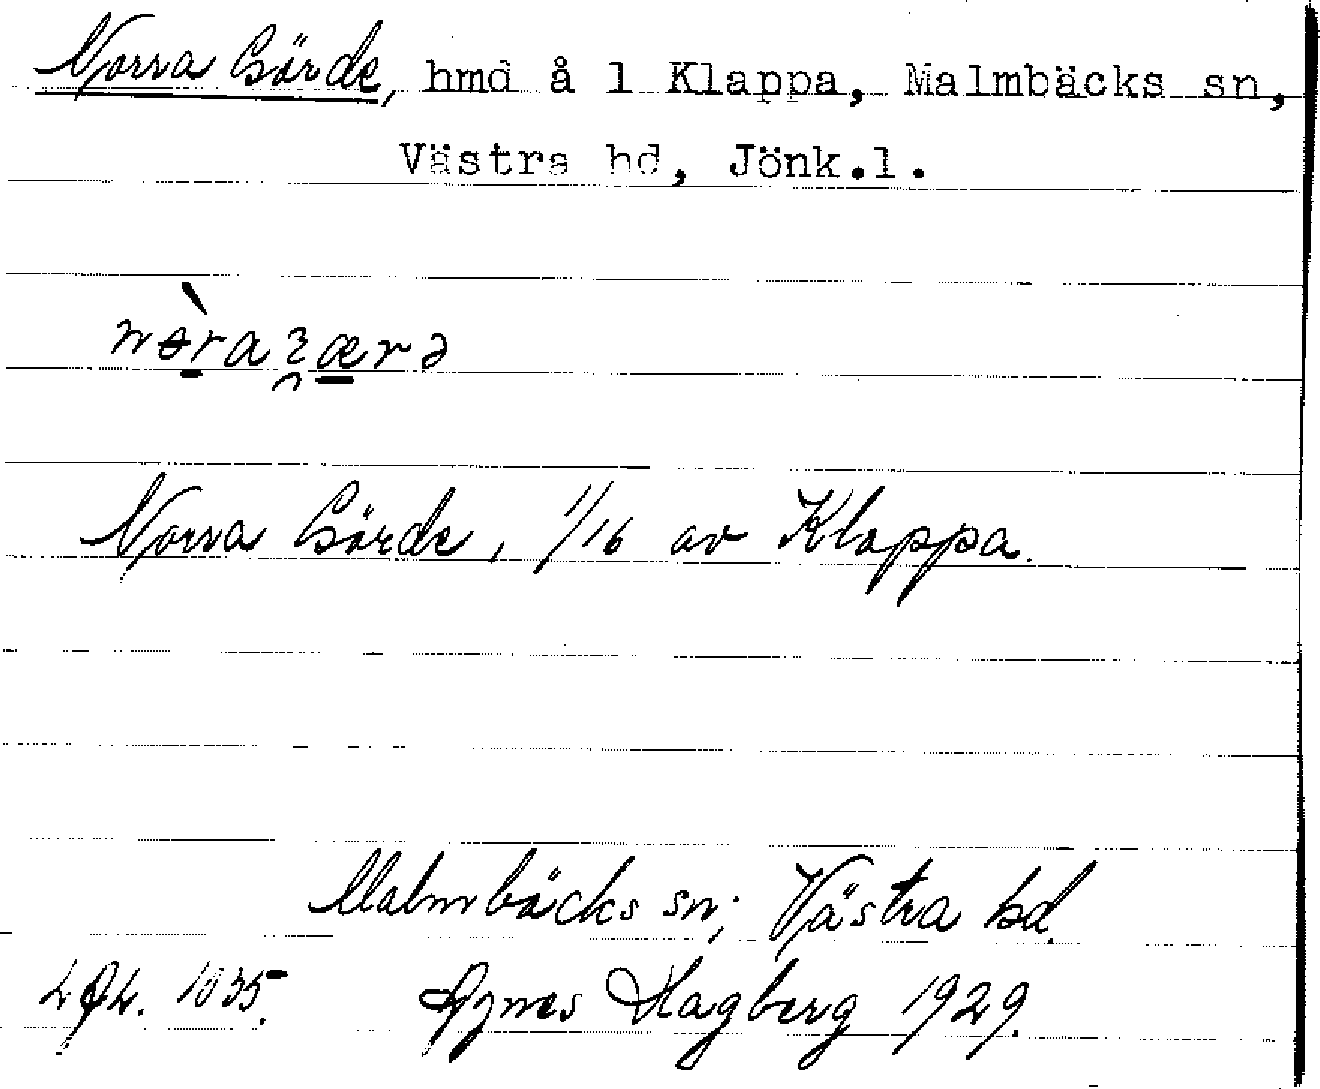 Norra Gärde, hmd å 1 Klappa, Malmbäcks sn,
Västra hd, Jönk.l.
Norra Gärde, 1/16 av Klappa.
Malmbäcks sn; Västra hd.
1035. Agnes Hagberg 1929.